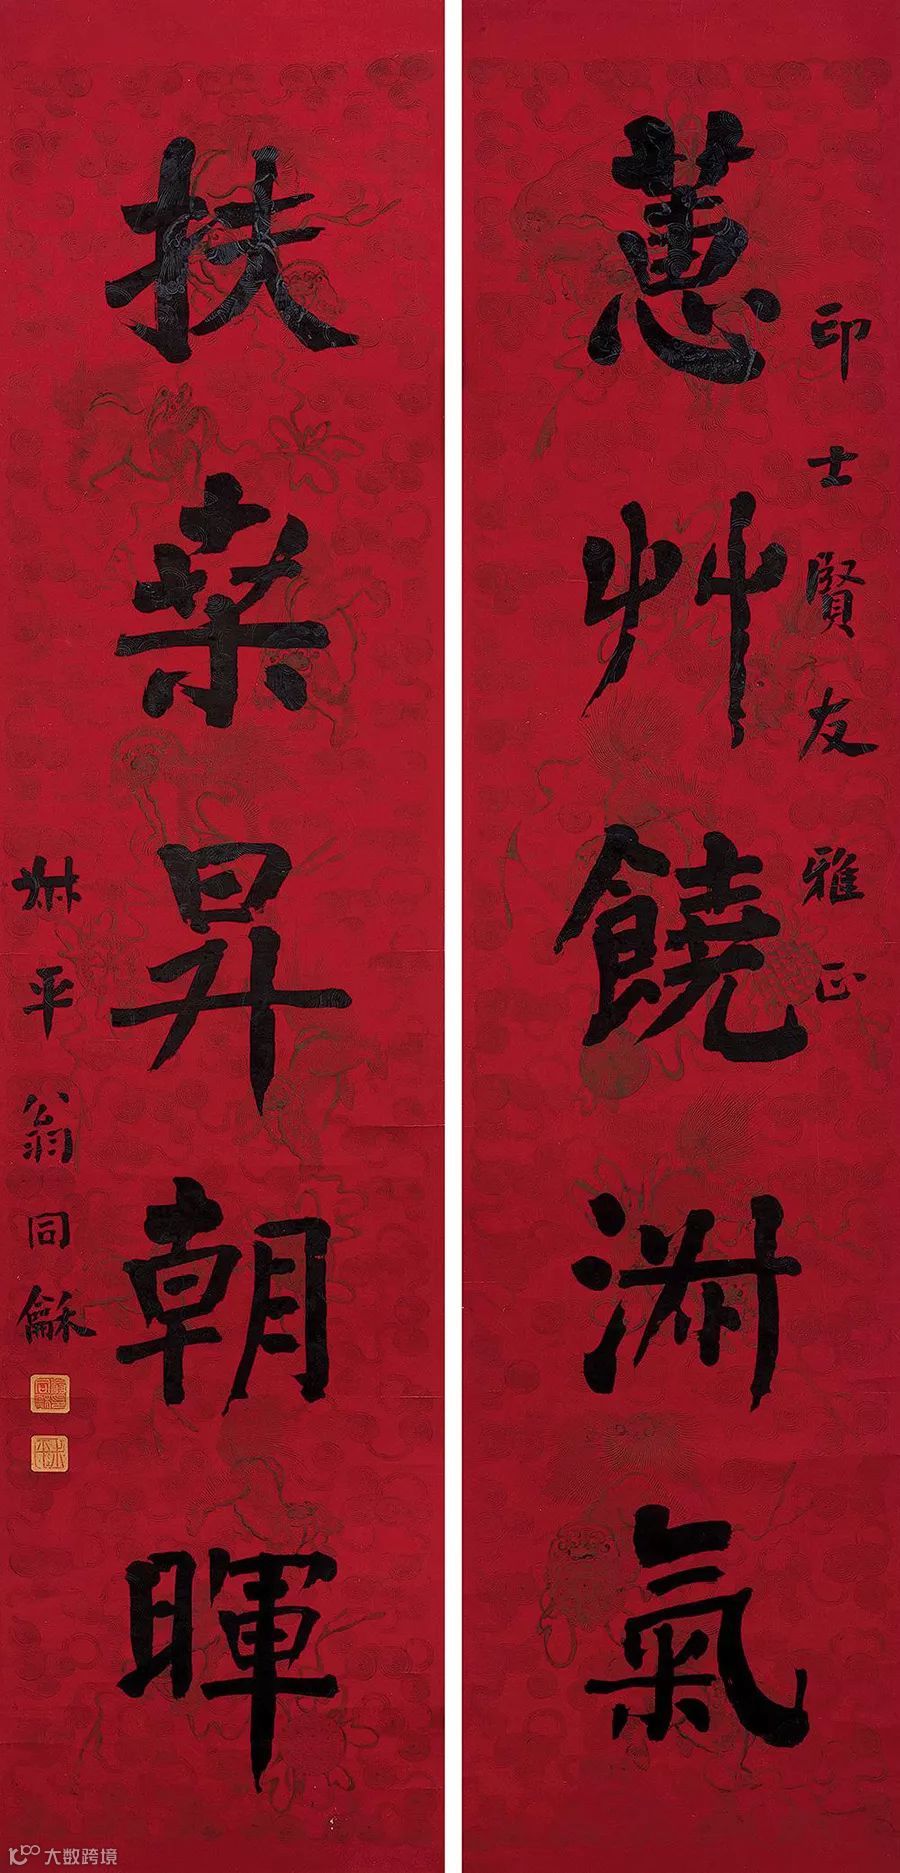 印士賢友雅正
蕙艸饒淑氣
扶桒昇朝暉
叔平翁同龢
大数跨境